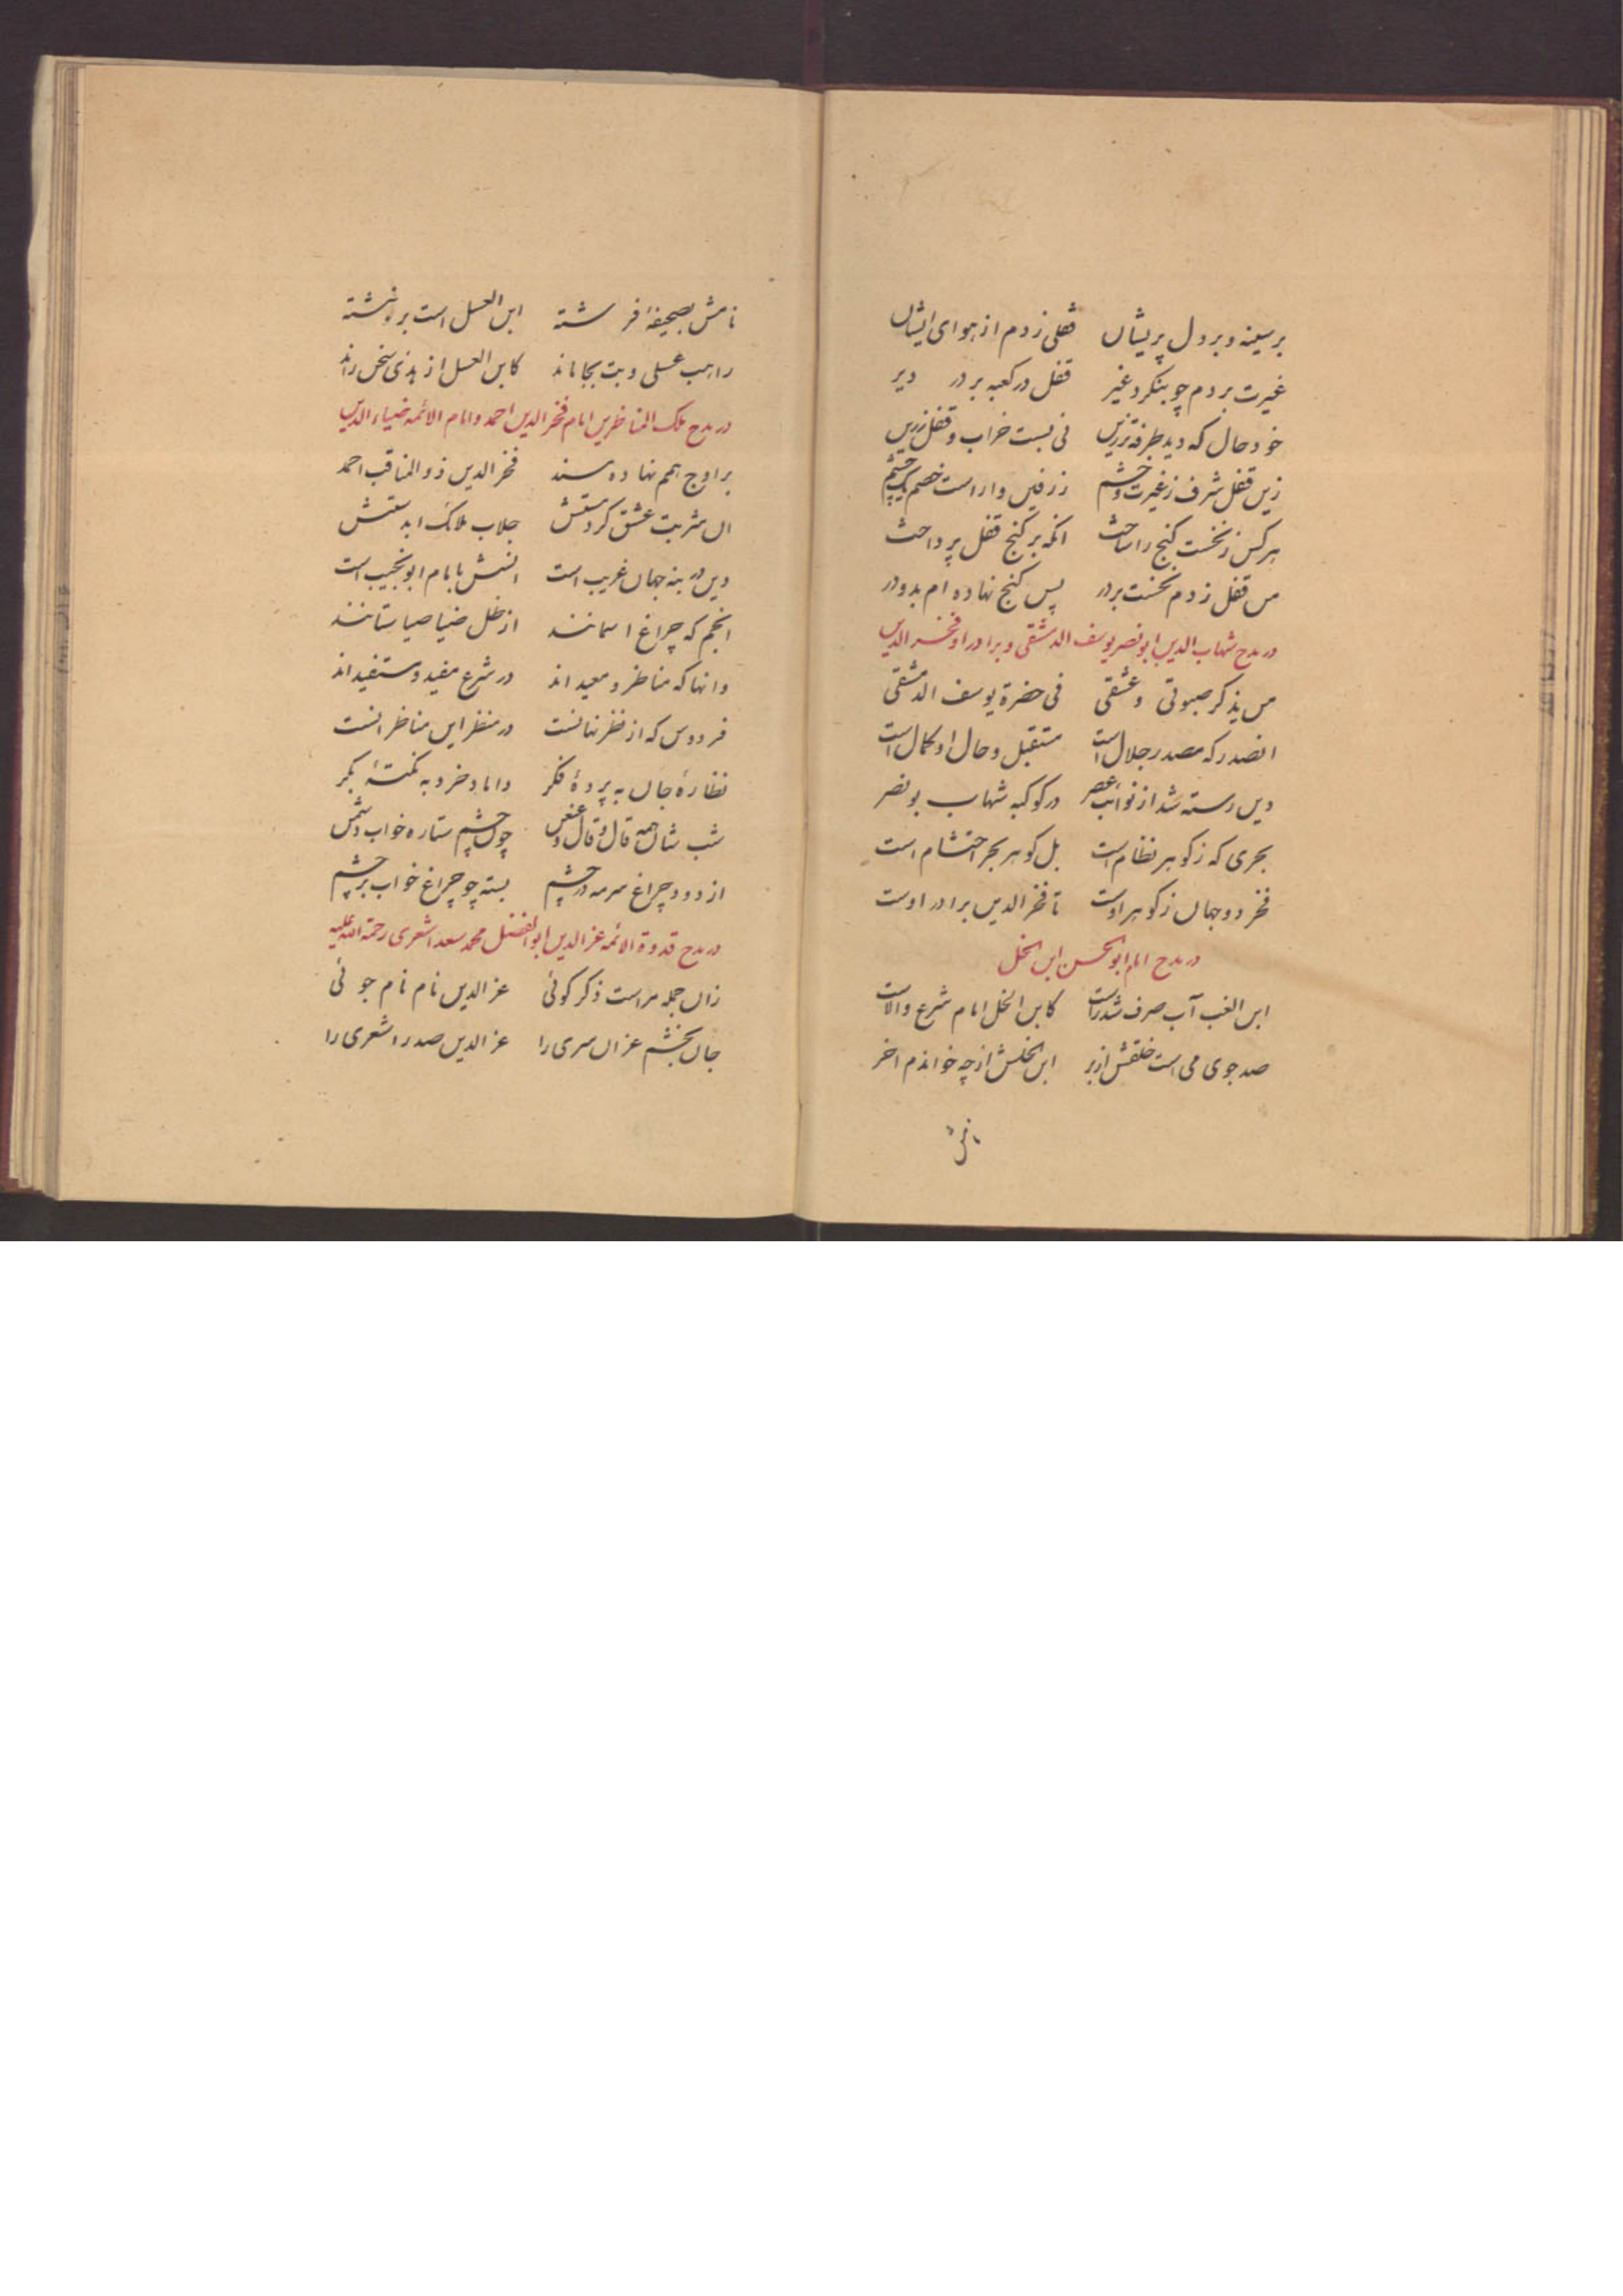 بر سینه و بر دل پریشان قفلی زدم از هوای ایشان
غیرت بردم چو بنکرد غیر قفل در کعبه بر در دیر
خود حال که دید طرفه‌تر زین نی بست خراب و قفل زرین
زین قفل شرف ز غیرت و خشم زرفین وار است خصم یک چشم
هر کس ز نخست کنج را ساخت انکه بر کنج قفل پرداخت
من قفل زدم نخست بر در پس کنج نهاده ام بدو در
در مدح شهاب الدین ابو نصر یوسف الدمشقی و برادر او فخر الدین
من یذکر صبوتی و عشقی فی حضرة یوسف الدمشقی
انصدر که مصدر جلال است مستقبل و حال او کمال است
دین رسته شد از نوائب عصر در کوکبه شهاب بو نصر
بحری که ز کوهر نظام است بل کوهر بحر احتشام است
فخر دو جهان ز کوهر اوست تا فخر الدین برادر اوست
در مدح امام ابو الحسن ابن الخل
ابن الغب آب صرف شد راست کابن الخل امام شرع والاست
صد جوی می است خلقش از بر ابن الخلش از چه خواندم اخر
نامش
نامش بصحیفهٔ فرشته ابن العسل است بر نوشته
راهب عسلی و بت بجا ماند کابن العسل از هدی سخن راند
در مدح ملک المناظرین امام فخر الدین احمد و امام الائمه ضیاء الدین
بر اوج همم نهاده مسند فخر الدین ذو المناقب احمد
ان شربت عشق کرد مستش جلاب ملک ابد ستش
دین در بنه جهان غریب است انسش با بام ابو نجیب است
انجم که چراغ اسمانند از ظل ضیا صیا ستانند
وانها که مناظر و معید اند در شرع مفید و مستفید اند
فردوس که از نظر نهانست در منظر این مناظرانست
نظارهٔ جان به پردهٔ فکر داماد خرد به نکتهٔ بکر
شب شان همه قال و قال و عنعن چون چشم ستاره خواب دشمن
از دود چراغ سرمه در چشم بسته چو چراغ خواب بر چشم
در مدح قدوة الائمه عز الدین ابو الفضل محمد سعد اشعری رحمة الله علیه
زان جمله مراست ذکر کوئی عز الدین نام نام جوئی
جان بخشم عز ان سری را عز الدین صدر اشعری را